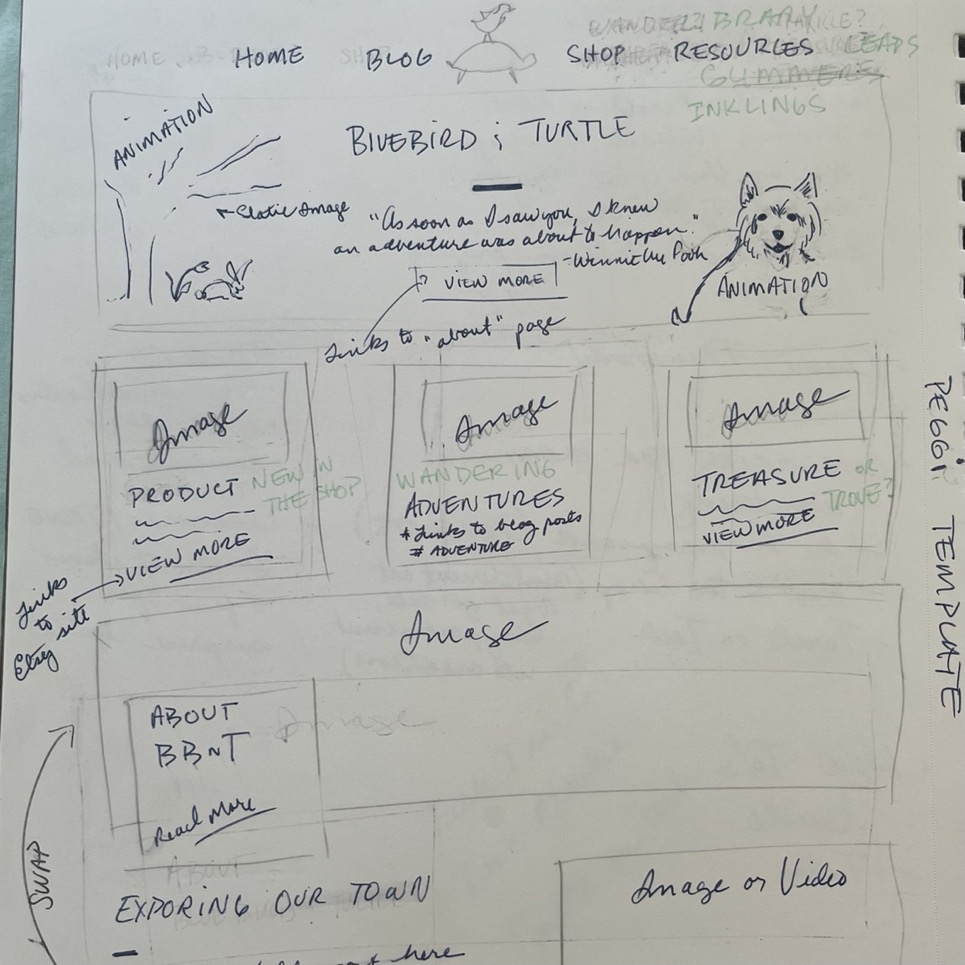 HOME BLOG SHOP RESOURCES LEADS
LIBRARY
GLIMMERS
INKLINGS
ANIMATION
BLUEBIRD & TURTLE
Static Image
"As soon as I saw you, I knew
an adventure was about to happen."
- Winnie the Pooh
VIEW MORE
ANIMATION
Links to "about" page
Image
PRODUCT NEW IN
THE SHOP
VIEW MORE
Links
to
Etsy site
Image
WANDERING
ADVENTURES
* Links to blog posts
# ADVENTURE
Image
TREASURE OR
TROVE?
VIEW MORE
PEGGI: TEMPLATE
Image
Image
ABOUT
BBnT
Read More
ABOUT
SWAP
EXPORING OUR TOWN
Image or Video
here